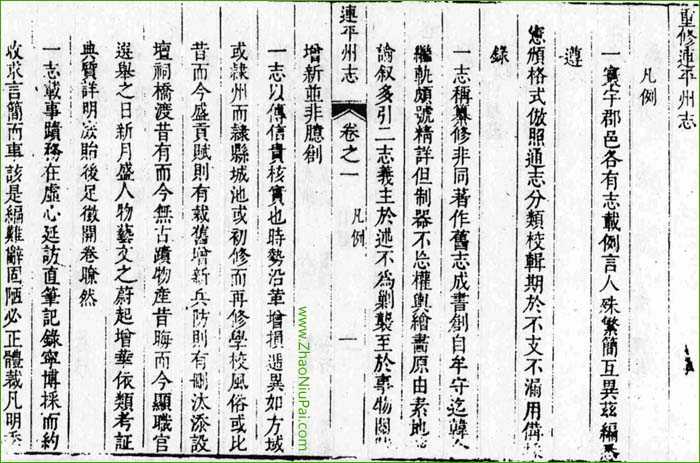 重修連平州志
凡例
一寰宇郡邑各有志載例言人殊繁簡互異茲編
遵
憲頒格式倣照通志分類校輯期於不支不漏用備
錄
一志稱纂修非同著作舊志成書創自牟守迄韓
繼軌頗號精詳但制器不忘權輿繪畫原由素地
論叙多引二志義主於述不為剿襲至於事物闕
連平州志
卷之一
凡例
一
增新並非臆創
一志以傳信貴核實也時勢沿革增損遞異如方域
或隸州而隸縣城池或初修而再修學校風俗或比
昔而今盛貢賦則有裁舊增新兵防則有刪汰添設
壇祠橋渡昔有而今無古蹟物產昔晦而今顯職官
選舉之日新月盛人物藝文之蔚起增華依類考証
典贊詳明滋貽後足徵開卷瞭然
一志載事蹟務在虛心延訪直筆記錄寧博採而約
收求言簡而事該是編雖辭固陋必正體裁凡明
www.ZhaoNiuPai.com